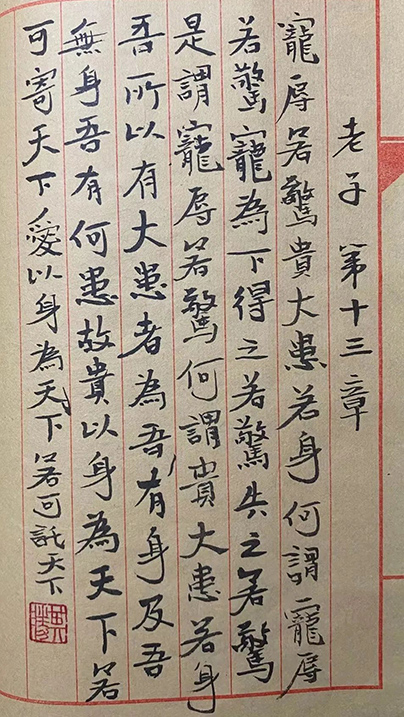 老子 第十三章
寵辱若驚貴大患若身何謂寵辱
若驚寵為下得之若驚失之若驚
是謂寵辱若驚何謂貴大患若身
吾所以有大患者為吾有身及吾
無身吾有何患故貴以身為天下若
可寄天下愛以身為天下若可託天下